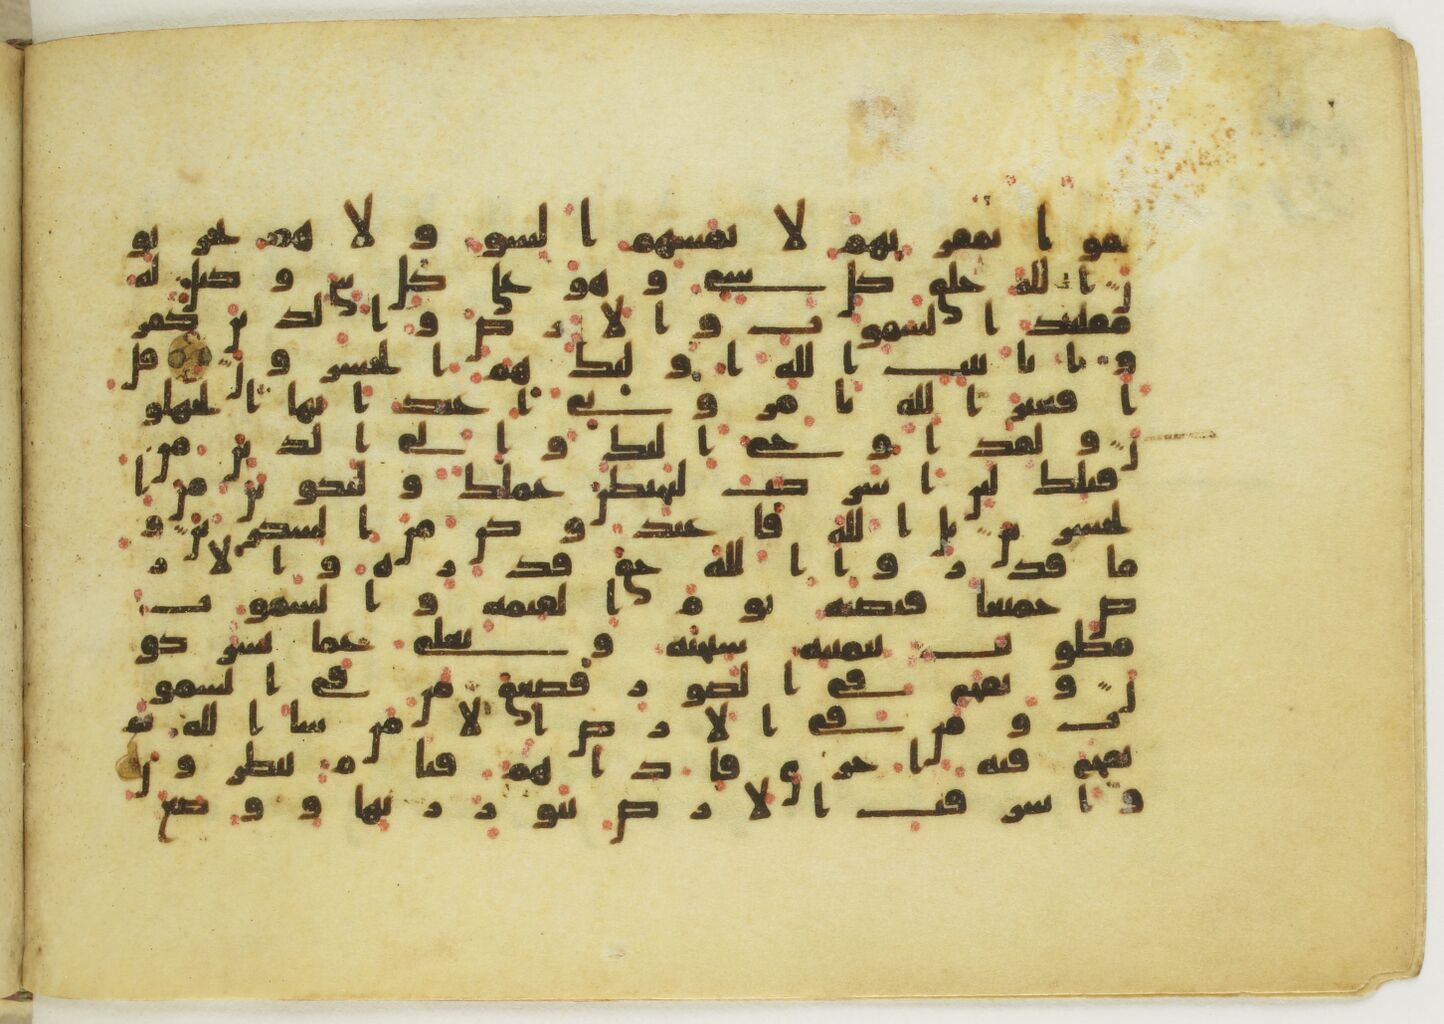 قوا بمفزتهم لا يمسهم السو ولا هم يحزنو
ن الله خلق كل شى وهو على كل شى وكيل له
مقليد السموت والارض والذين كفر
وا بايت الله اوليك هم الخسرون قل
افغير الله تامرونى اعبد ايها الجهلو
ن ولقد اوحى اليك والى الذين من
قبلك لين اشركت ليحبطن عملك ولتكونن من ا
لخسرين بل الله فاعبد وكن من الشكرين و
ما قدروا الله حق قدره والار
ض جميعا قبضته يوم القيمه والسموت
مطويت بيمينه سبحنه وتعلى عما يشركو
ن ونفخ فى الصور فصعق من فى السمو
ت ومن فى الارض الا من شا الله ثم
نفخ فيه اخرى فاذا هم قيام ينظرون
واشرقت الارض بنور ربها ووضع